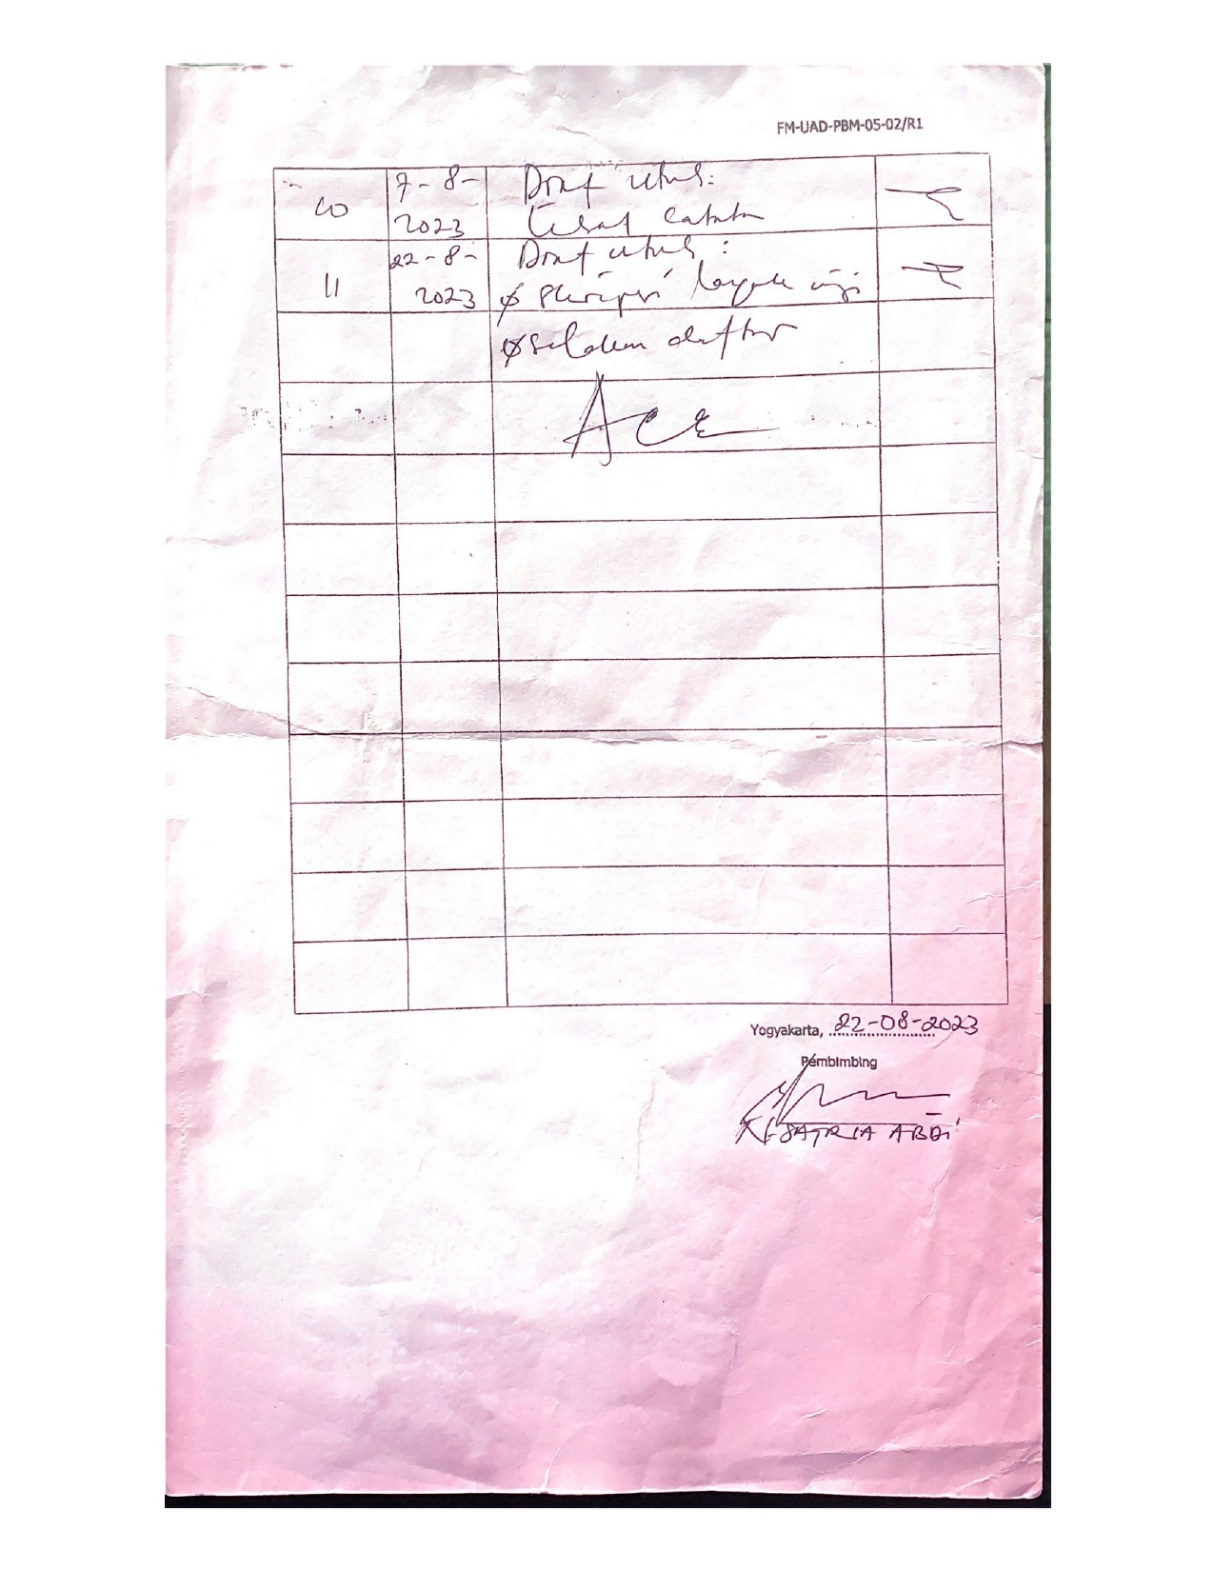 FM-UAD-PBM-05-02/R1
10
7-8-
2023
Draf utuh:
catatan
11
22-8-
2023
Draf utuh:
Skripsi layak uji
Silakan daftar
Acc
Yogyakarta, 22-08-2023
Pembimbing
SATRIA ABDI